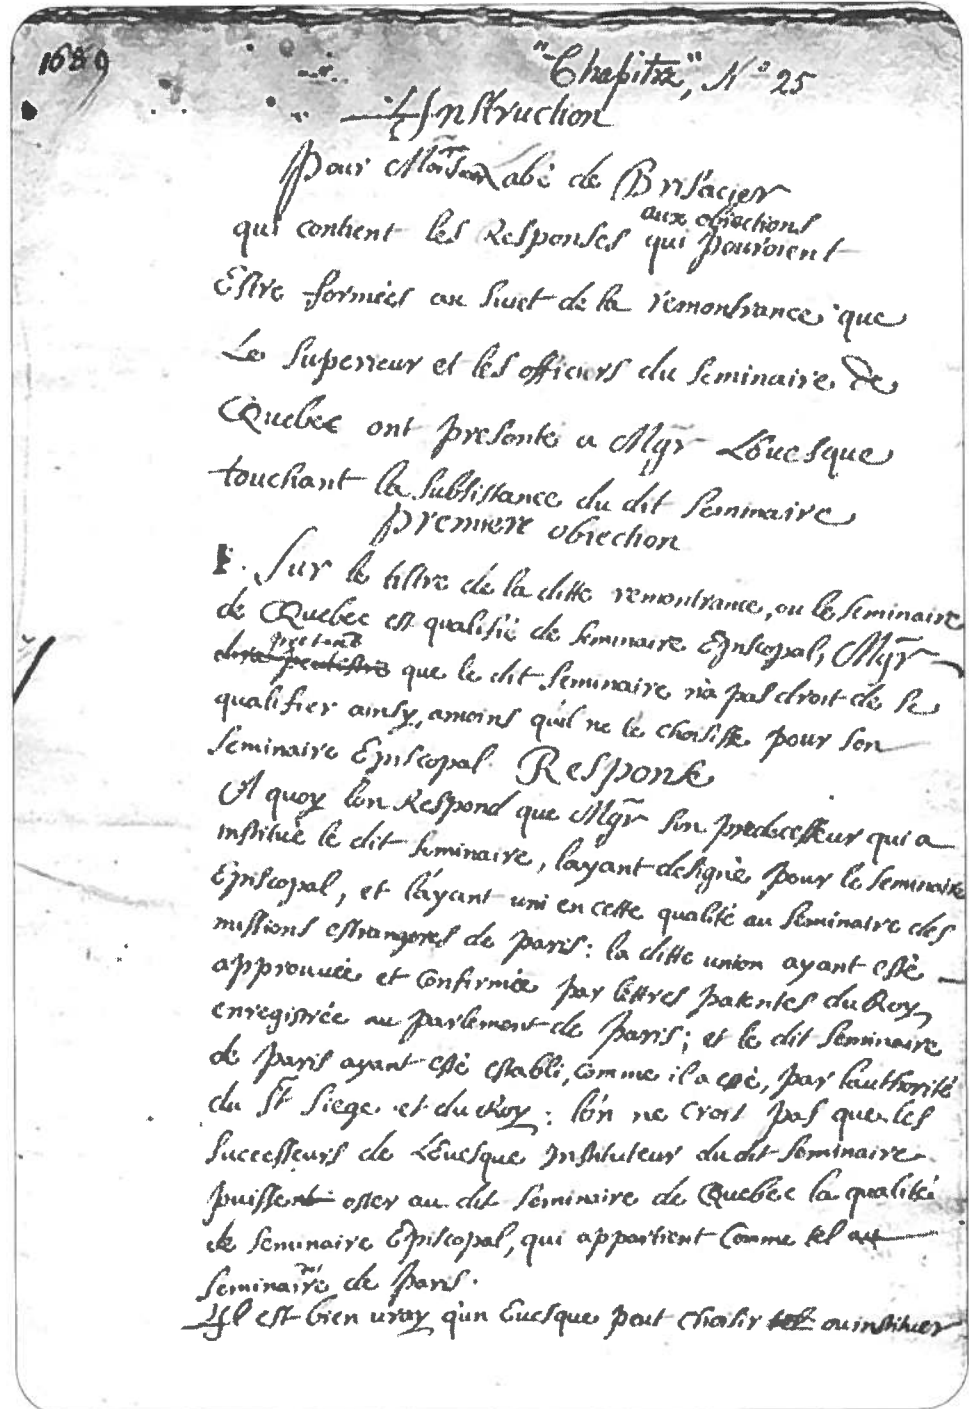 1689
"Chapitre", N° 25
Instruction
pour Monsieur Labé de Brisacier
aux obiections
qui contient les Responses qui pouroient
Estre formées au suiet de la remontrance que
Le superieur et les officiers du seminaire de
Quebec ont presenté a Mgr L'Euesque
touchant la subsistance du dit seminaire
premiere obiection
I. Sur le tiltre de la ditte remontrance, ou le seminaire
de Quebec est qualifié de seminaire Episcopal, Mgr
pretend
dira peutestre que le dit seminaire n'a pas droit de se
qualifier ainsy, amoins qu'il ne le choisisse pour son
seminaire Episcopal. Responce
A quoy l'on Respond que Mgr son predecesseur qui a
institué le dit seminaire, l'ayant designé pour le seminaire
Episcopal, et l'ayant uni en cette qualité au seminaire des
missions estrangeres de paris: la ditte union ayant esté
approuuée et confirmée par lettres patentes du Roy
enregistrée au parlement de Paris; et le dit seminaire
de paris ayant esté establi, comme il a esté, par l'authorité
du St Siege et du Roy: l'on ne croit pas que les
successeurs de L'Euesque instituteur du dit seminaire
puissent oster au dit seminaire de Quebec la qualité
de seminaire Episcopal, qui appartient comme tel au
seminaire de paris.
Il est bien uray qu'un Euesque peut choisir tel ou instituer